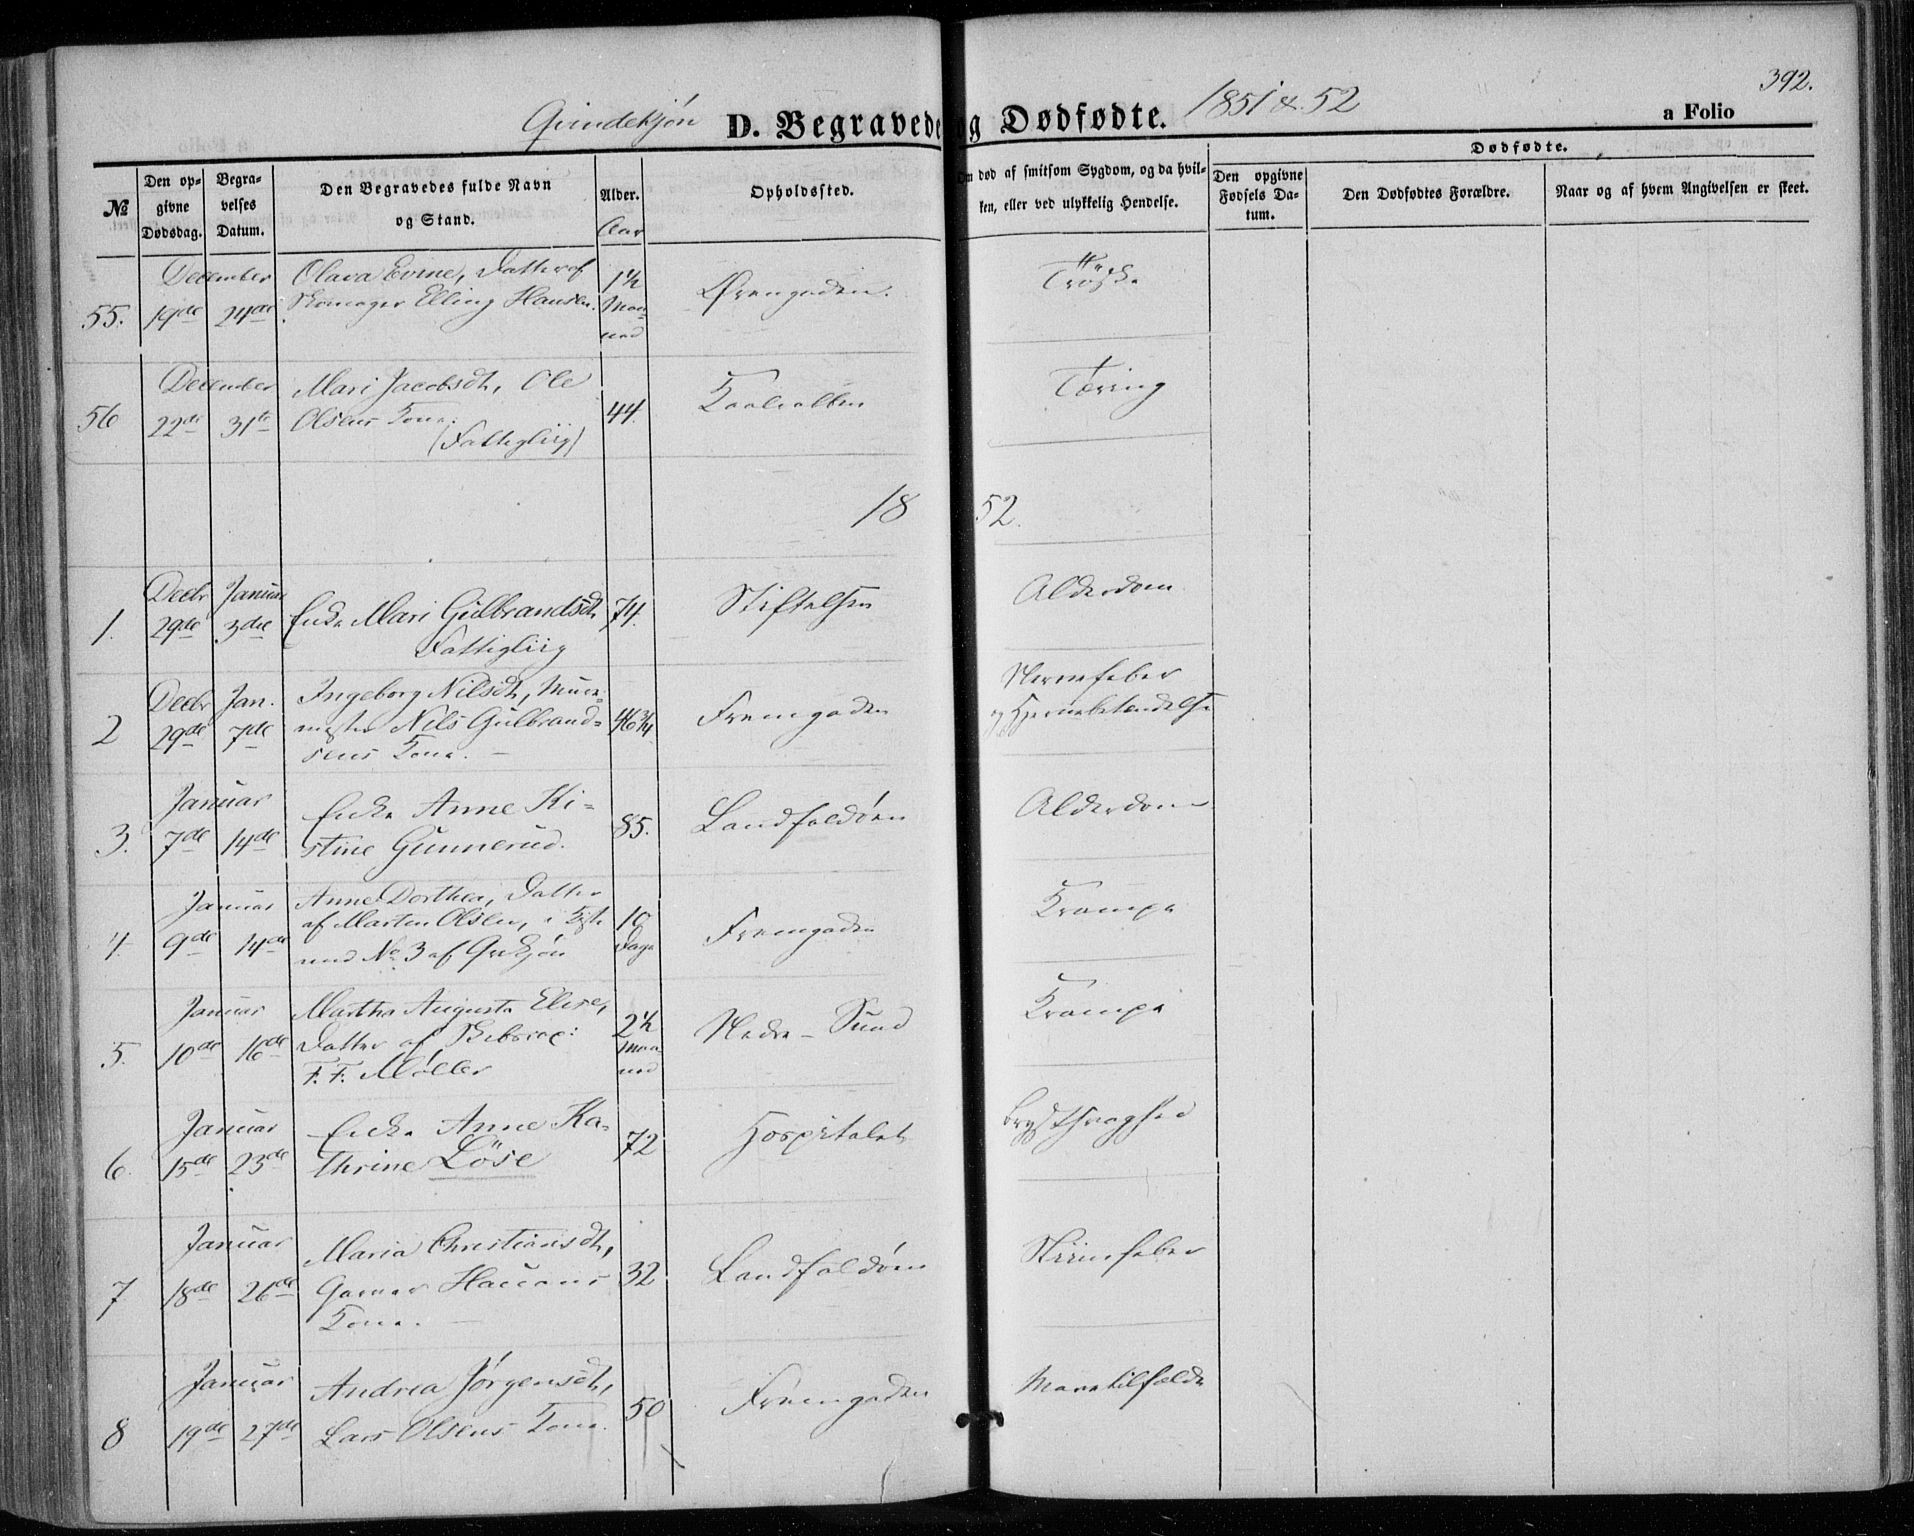 392.
Qvindekjøn D. Begravede og Dødfødte. 1851 & 52 a Folio
№ Den opgivne Dødsdag. Begravelses Datum. Den Begravedes fulde Navn og Stand. Alder. Opholdssted. Om død af smitsom Sygdom, og da hvilken, eller ved ulykkelig Hendelse. Dødfødte.
Den opgivne Fødsels Datum. Den Dødfødtes Forældre. Naar og af hvem Angivelsen er skeet.
Aar
December Olava Evine, Datter af 1½ Trøske
55. 19de 24de Skomager Elling Hansen. Maaned Øvregaden.
December Mari Jacobsdt, Ole Tæring
56 22de 31te Olsens Kone. 44.
(Fattiglig)
18 52.
Decbr Januar Alderdom
1. 29de 3die Enke Mari Gulbrandsdt 74. Stiftelsen
Fattiglig
Decbr Jan. Ingeborg Nilsdt, Muur- Nervefeber
2 29de 7de mester Nils Gulbrand- 46¾ Fremgaden og Hjernebetændelse
sens Kone. —
Januar Enke Anne Ki- Alderdom
3. 7de 14de stine Gunnerud. 85. Landfaldøen
Januar Anne Dorthea, Datter Krampe
4. 9de 14de af Marten Olsen, i Kiste 10 Dage Fremgaden
med No 3 af Qvkjøn
Januar Martha Augusta Elise, Krampe
5. 10de 16de Datter af Skibscap: 2½ Maaned Nedre-Sund
F. F. Møller
Januar Enke Anne Ka- Brystsvaghed
6. 15de 23de thrine Löse 72 Hospitalet
Januar Maria Christiansdt, Nervefeber
7 18de 26de Gunner 32 Landfaldøen
Kone. —
Januar Andrea Jørgensdt, Mavetilfælde
8 19de 27de Lars Olsens Kone. 50 Fremgaden